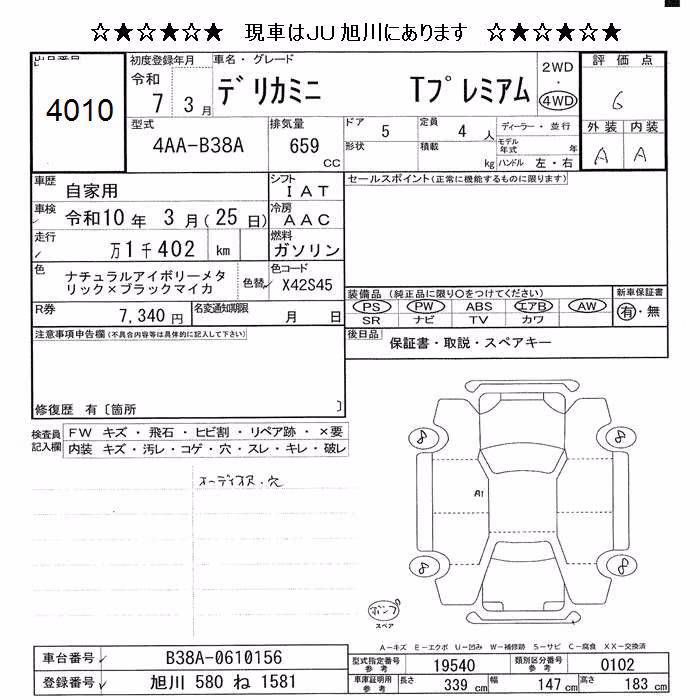 ☆★☆★☆★ 現車はJU旭川にあります ☆★☆★☆★
出品番号
4010
初度登録年月
令和
7 3月
車名・グレード
デリカミニ Tプレミアム
2WD
・
4WD
評価点
6
型式
4AA-B38A
排気量
659
CC
ドア 5
定員 4 人
形状
積載 kg
ディーラー・並行
モデル年式 年
ハンドル 左・右
外装 内装
A A
車歴 自家用
シフト
IAT
車検 令和10年 3月(25日)
冷房
AAC
走行 万1千402 km
燃料
ガソリン
色 ナチュラルアイボリーメタリック×ブラックマイカ
色替
色コード
X42S45
R券 7,340円
名変通知期限
月 日
セールスポイント(正常に機能するものに限ります)
装備品 (純正品に限り○をつけてください)
PS PW ABS エアB AW
SR ナビ TV カワ
新車保証書
有・無
後日品 保証書・取説・スペアキー
注意事項申告欄(不具合内容等は具体的に記入して下さい)
修復歴 有〔箇所 〕
検査員記入欄
FW キズ・飛石・ヒビ割・リペア跡・×要
内装 キズ・汚レ・コゲ・穴・スレ・キレ・破レ
オーディオス・穴
8 8
A1
8 8
ポンプ
スペア
A-キズ E-エクボ U-凹み W-補修跡 S-サビ C-腐食 XX-交換済
車台番号 B38A-0610156
登録番号 旭川 580 ね 1581
型式指定番号参考 19540
類別区分番号参考 0102
車庫証明用参考 長さ 339 cm 幅 147 cm 高さ 183 cm